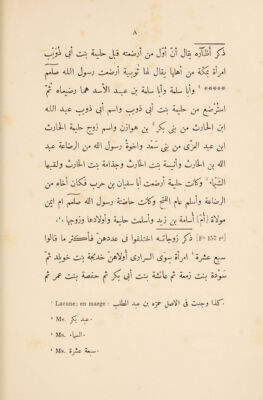 ٨
ذكر أظآره يقال أنّ أوّل من أرضعته قبل حليمة بنت أبى ذُؤَيْب
امرأة بمكّة من أهلها يقال لها ثُويبة أرضعت رسول الله صلعم
***** ¹ وأبا سلمة بن عبد الأسد هما رضيعاه ثمّ
استُرْضع من حليمة بنت أبى ذويب واسم أبى ذويب عبد الله
ابن الحارث من بنى بكر ² بن هوازن واسم زوج حليمة الحارث
ابن عبد العزّى من بنى سعد واخوة رسول الله من الرضاعة عبد
الله بن الحارث وأنيسة بنت الحارث وجذامة بنت الحارث ولقبها
الشَيْماء ³ وكانت حليمة أرضعت أبا سفيان بن حرب فكان أخاه من
الرضاعة وأسلم عام الفتح وكانت حاضنة رسول الله صلعم ام ايمن
مولاة [أمّ] أسامة بن زيد وأسلمت حليمة وأولادها وزوجها،،
[Fº 157 rº] ذكر زوجاته اختلفوا فى عددهنّ فأكثر ما قالوا
سبع عشرة ⁴ امرأة سِوَى السرارى أولاهنّ خديجة بنت خويلد ثمّ
سَوْدة بنت زمعة ثم عائشة بنت أبى بكر ثم حفصة بنت عمر ثم
¹ Lacune; en marge : كذا وجدت فى الاصل حمزه بن عبد المطلب.
² Ms. عبد بكر.
³ Ms. السماء.
⁴ Ms. سبعة عشرة.